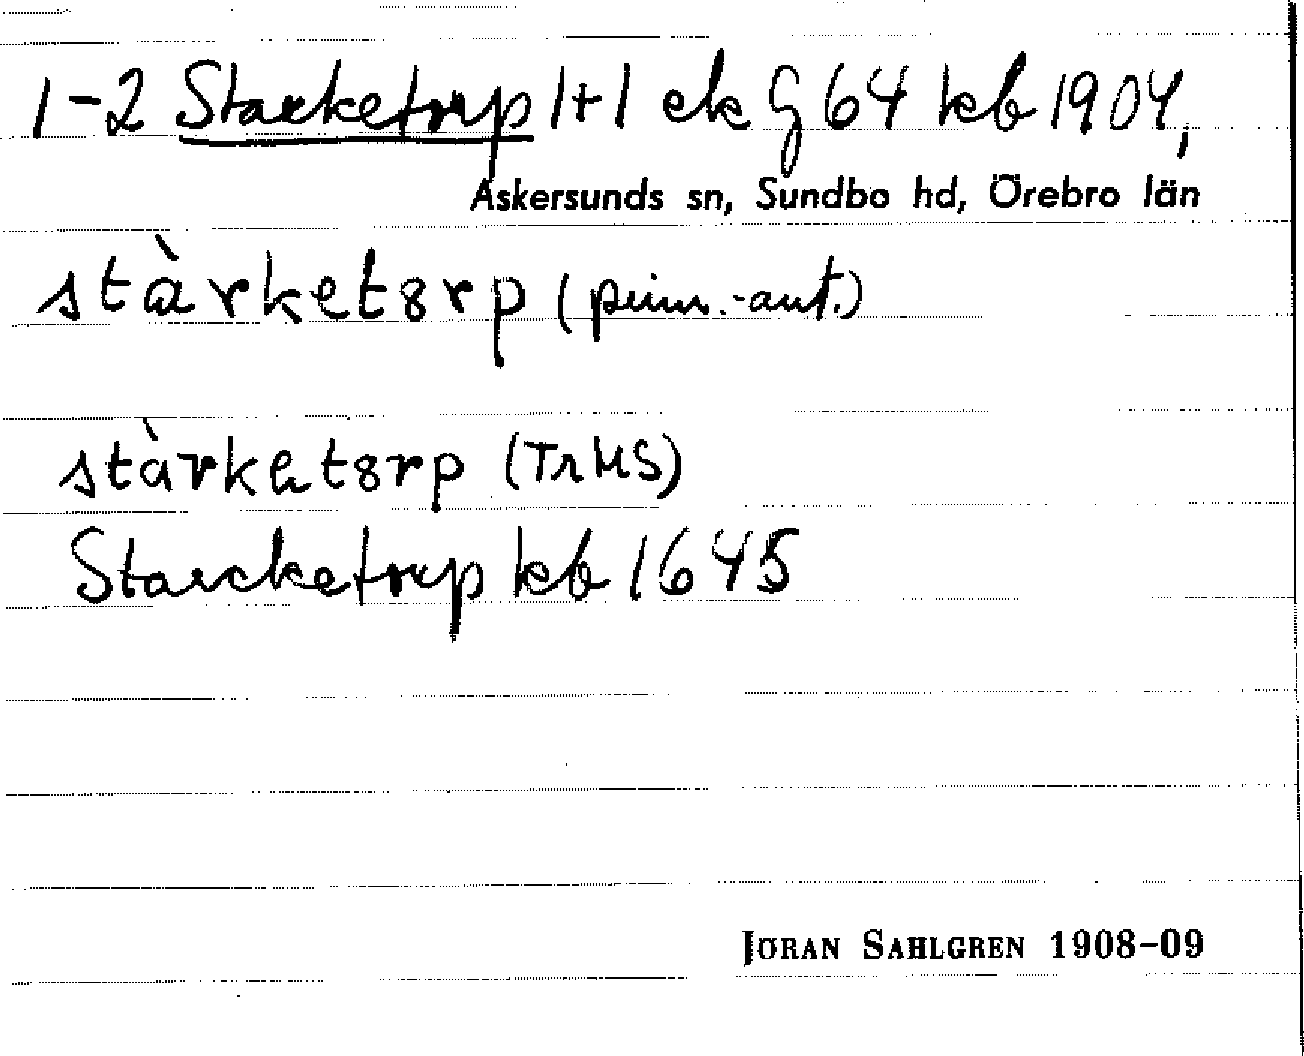 1-2 Starketorp 1+1 ek G 64 kb 1904,
Askersunds sn, Sundbo hd, Örebro län
stàrketorp (prim.-ant.)
stàrketorp (TrHS)
Starcketorp kb 1645
JÖRAN SAHLGREN 1908-09